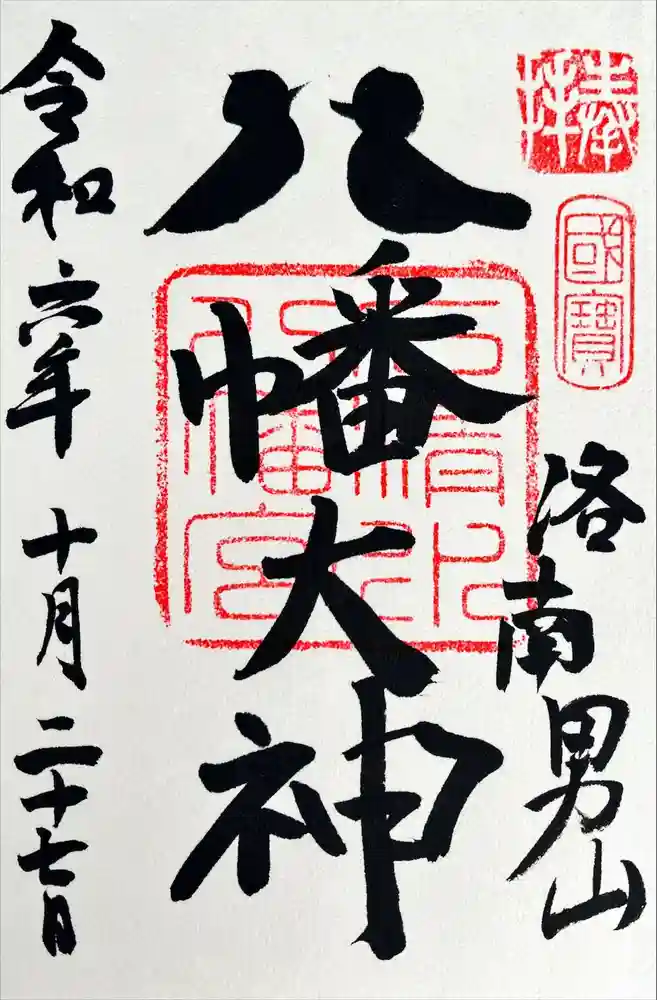 奉拝
國寶
洛南男山
八幡大神
石清水八幡宮
令和六年 十月 二十七日